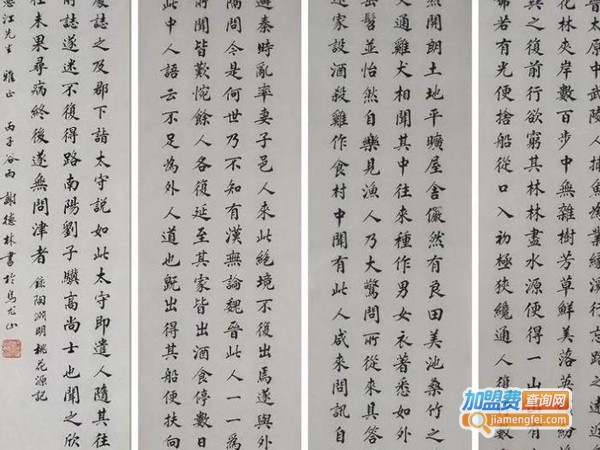 太原中武陵人捕魚為業緣溪行忘路之遠近
花林夾岸數百步中無雜樹芳草鮮美落英
之復前行欲窮其林林盡水源便得一山有
若有光便捨船從口入初極狹纔通人復數
然開朗土地平曠屋舍儼然有良田美池桑竹之
交通雞犬相聞其中往來種作男女衣著悉如外
髫並怡然自樂見漁人乃大驚問所從來具答
還家設酒殺雞作食村中聞有此人咸來問訊自
避秦時亂率妻子邑人來此絕境不復出焉遂與外
隔問今是何世乃不知有漢無論魏晉此人一一為
所聞皆歎惋餘人各復延至其家皆出酒食停數日
此中人語云不足為外人道也既出得其船便扶向
處誌之及郡下詣太守說如此太守即遣人隨其往
前誌遂迷不復得路南陽劉子驥高尚士也聞之欣
往未果尋病終後遂無問津者 錄陶淵明桃花源記
江先生 雅正 丙子谷雨 謝德林書於烏龙山
加盟费查询网
jiamengfei.com